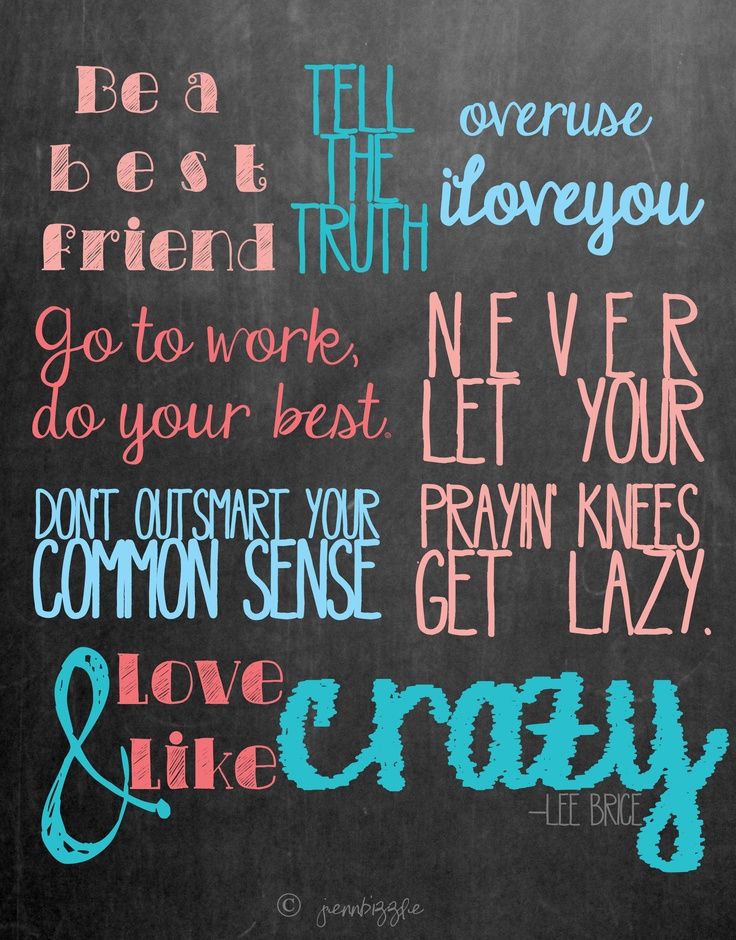 Be a
best
friend
TELL
THE
TRUTH
overuse
iloveyou
Go to work,
do your best.
DON'T OUTSMART YOUR
COMMON SENSE
NEVER
LET YOUR
PRAYIN' KNEES
GET LAZY.
& LOVE
Like
crazy
-LEE BRICE
© jennbizzle